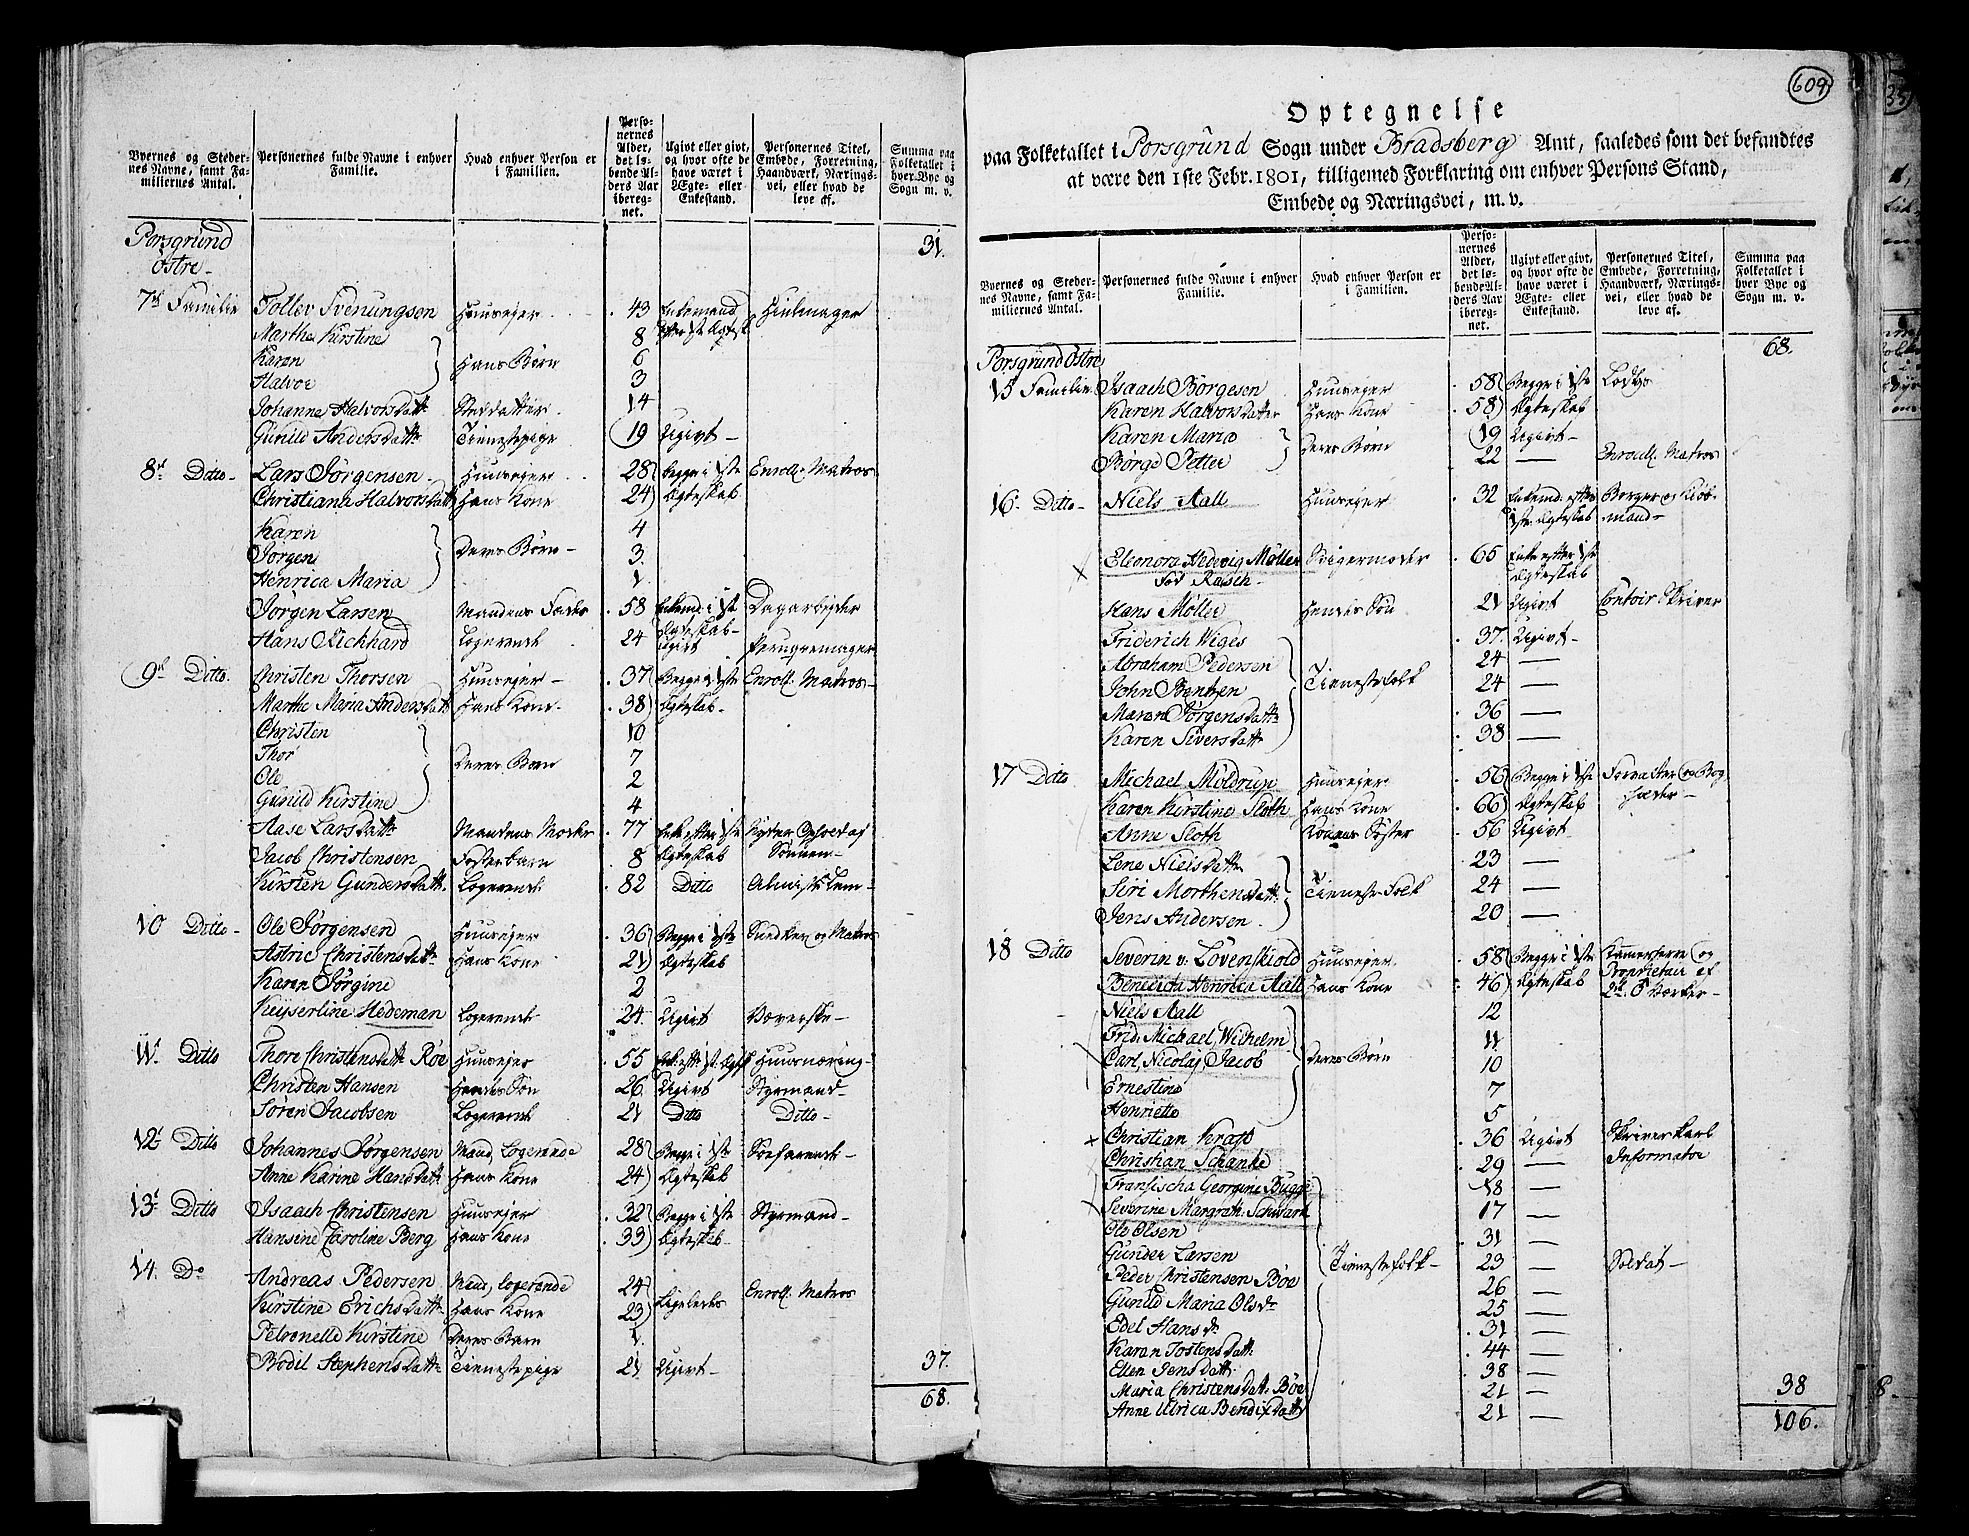 Byernes og Steder-
nes Navne, samt Fa-
miliernes Antal.
Personernes fulde Navne i enhver
Familie.
Hvad enhver Person er
i Familien.
Perso-
nernes
Alder,
det lø-
bende Al-
ders Aar
ibereg-
net.
Ugivt eller givt,
og hvor ofte de
have været i
Ægte- eller
Enkestand.
Personernes Titel,
Embede, Forretning,
Haandværk, Nærings-
vei, eller hvad de
leve af.
Summa paa
Folketallet i
hver Bye og
Sogn m. v.
Porsgrund 31.
Østre-
7de Familie Tollev Svenungsen Huusejer 43 Enkemand Hiulmager
efter 1ste Ægtesk.
Marthe Kirstine 8
Karen Hans Børn 6
Halvor 3
Johanne Halvorsdatt. Steddatter 14
Gunild Andersdatt. Tienestepige 19 Ugivt-
8de Ditto- Lars Jørgensen Huusejer 28 Begge i 1ste Enroll. Matros
Christiane Halvorsdatt. Hans Kone 24 Ægteskab
Karen 4
Jørgen Deres Børn- 3.
Henrica Maria 1.
Jørgen Larsen Mandens Fader 58 Enkemd i 1ste Dagarbejder
Ægteskab-
Hans Richhard Logerende 24 Ugivt Peruqvemager
9de Ditto. Christen Thorsen Huusejer- 37 Begge i 1ste Enroll. Matros-
Marthe Maria Andersdatt. Hans Kone- 38 Ægteskab-
Christen 10
Thor Deres Børn 7
Ole 2
Gunild Kirstine 4
Aase Larsdatt. Mandens Moder 77 Enke efter 1ste Nyder Ophold af
Jacob Christensen Fosterbarn 8 Ægteskab Sønnen-
Kirsten Gundersdatt. Logerende 82 Ditto Almisselem-
10 Ditto- Ole Jørgensen Huusejer 36 Begge i 1ste Snedker og Matros
Astrie Christensdatt. Hans Kone 21 Ægteskab
Karen Jørgine 2
Keyserline Hedeman Logerende 24. Ugivt Væverske-
11te Ditto Thore Christensdatt. Røe Huusejer 55 Huusnæring-
Christen Hansen Hendes Søn 26 Ugivt Styrmand-
Søren Jacobsen Logerende 21 Ditto Ditto-
12te Ditto Johannes Jørgensen Mand, Logerende 28 Begge i 1ste Søefarende-
Anne Karine Hansdatt. Hans Kone 24 Ægteskab
13de Ditto Isaach Christensen Huusejer 32 Begge i 1ste Styrmand-
Hansine Caroline Berg Hans Kone 33 Ægteskab-
14. Do Andreas Pedersen Mand, logerende 24 Ligeledes Enroll. Matros
Kirstine Erichsdatt. Hans Kone 23
Petronelle Kirstine Deres Barn 1.
Bodil Stephensdatt. Tienestepige 21 Ugivt- 37.
68.
609
Optegnelse
paa Folketallet i Porsgrund Sogn under Bradsberg Amt, saaledes som det befandtes
at være den 1ste Febr. 1801, tilligemed Forklaring om enhver Persons Stand,
Embede og Næringsvei, m. v.
Byernes og Steder-
nes Navne, samt Fa-
miliernes Antal.
Personernes fulde Navne i enhver
Familie.
Hvad enhver Person er
i Familien.
Perso-
nernes
Alder,
det lø-
bende Al-
ders Aar
ibereg-
net.
Ugivt eller givt,
og hvor ofte de
have været i
Ægte- eller
Enkestand.
Personernes Titel,
Embede, Forretning,
Haandværk, Nærings-
vei, eller hvad de
leve af.
Summa paa
Folketallet i
hver Bye og
Sogn m. v.
Porsgrund Østre 68.
15 Familie Isaach Børgesen Huusejer 58 Begge i 1ste Lods
Karen Halvorsdatter Hans Kone 58 Ægteskab
Karen Maria Deres Børn 19 Ugivt-
Børge Petter 22 — Enroull. Matros
16. Ditto- Niels Aall Huusejer 32 Enkemd. efter Borger og Kiøb-
1ste Ægteskab mand-
Eleonora Hedevig Møller Svigermoder 65 Enke efter 1ste
fød Rasch- Ægteskab
Hans Møller Hendes Søn 21 Ugivt Contoir Skriver
Friderich Wiges 37. Ugivt-
Abraham Pedersen 24 —
John Bentzen Tienestefolk 24 —
Maren Jørgensdatt. 36 —
Karen Siversdatt. 38 —
17 Ditto Michael Moldrup Huusejer 56 Begge i 1ste Forvalter og Bog-
Karen Kirstine Sloth Hans Kone 66 Ægteskab holder-
Anne Sloth Konens Søster 56 Ugivt
Lene Nielsdatt. 23 —
Siri Morthensdatt. Tieneste-Folk 24 —
Jens Andersen 20 —
18 Ditto Severin v. Løvenskiold Huusejer 58 Begge i 1ste Kamerherre og
Benedicte Henrica Aall Hans Kone 46 Ægteskab Proprietair af
Niels Aall 12
Frid. Michael, Wilhelm 11
Carl, Nicolaj, Jacob Deres Børn 10
Ernestine 7
Henriette 5
Christian Kraft 36 Ugivt Skriverkarl
Christian Schanke 29 — Informator
Fransischa Georgine Bugge 18 —
Severine Margreth. Schwartz 17 —
Ole Olsen 31 —
Gunder Larsen Tienestefolk- 23 — Soldat-
Peder Christensen Bøe 26 —
Gunild Maria Olsdr 25 —
Edel Hansdr 31 —
Karen Jostensdatt. 44 —
Ellen Jensdatt. 38 —
Maria Christensdatt. Bøe 21 — 38
Anne Ulrica Bendixdatt. 21 — 106.